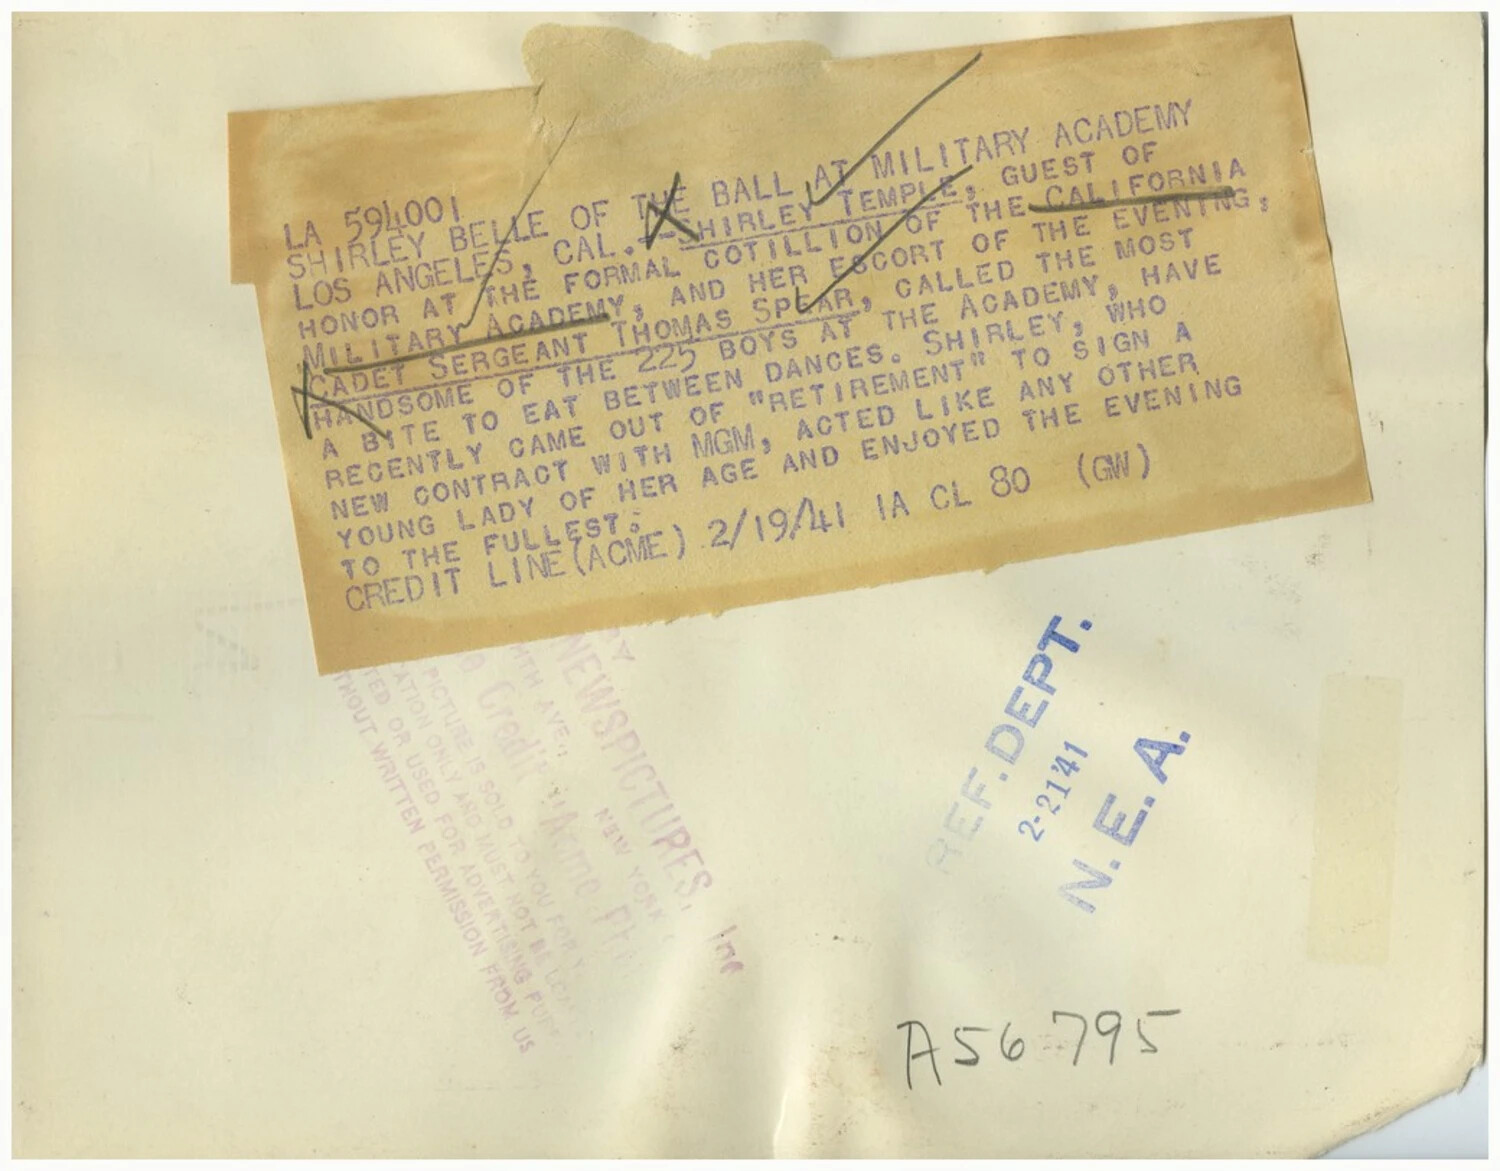 LA 594001
SHIRLEY BELLE OF THE BALL AT MILITARY ACADEMY
LOS ANGELES, CAL.--SHIRLEY TEMPLE, GUEST OF
HONOR AT THE FORMAL COTILLION OF THE CALIFORNIA
MILITARY ACADEMY, AND HER ESCORT OF THE EVENING,
CADET SERGEANT THOMAS SPEAR, CALLED THE MOST
HANDSOME OF THE 225 BOYS AT THE ACADEMY, HAVE
A BITE TO EAT BETWEEN DANCES. SHIRLEY, WHO
RECENTLY CAME OUT OF "RETIREMENT" TO SIGN A
NEW CONTRACT WITH MGM, ACTED LIKE ANY OTHER
YOUNG LADY OF HER AGE AND ENJOYED THE EVENING
TO THE FULLEST.
CREDIT LINE (ACME) 2/19/41 IA CL 80 (GW)
NEWSPICTURES, Inc
AVE., NEW YORK
Credit "Acme
PICTURE IS SOLD TO YOU FOR
ONLY AND MUST NOT BE
OR USED FOR ADVERTISING
WRITTEN PERMISSION FROM US
REF. DEPT.
2-21'41
N. E. A.
A56795